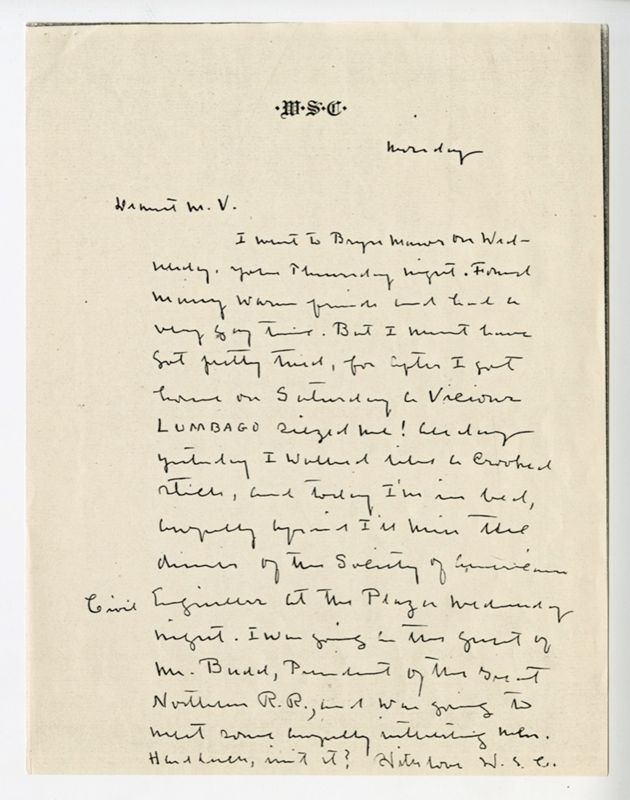 ·W·S·C·
Monday
Dearest M. V.
I went to Bryn Mawr on Wed-
nesday, Thursday night. Found
many warm friends and had a
very gay time. But I must have
got pretty tired, for after I got
home on Saturday a Vicious
LUMBAGO siezed me! All day
yesterday I walked like a Crooked
stick, and today I'm in bed,
awfully afraid I'll miss the
dinner of the Society of American
Civil Engineers at the Plaza Wednesday
night. I was going as the guest of
Mr. Budd, President of the Great
Northern R.R., and was going to
meet some awfully interesting men.
Hard luck, isn't it? With love W. S. C.